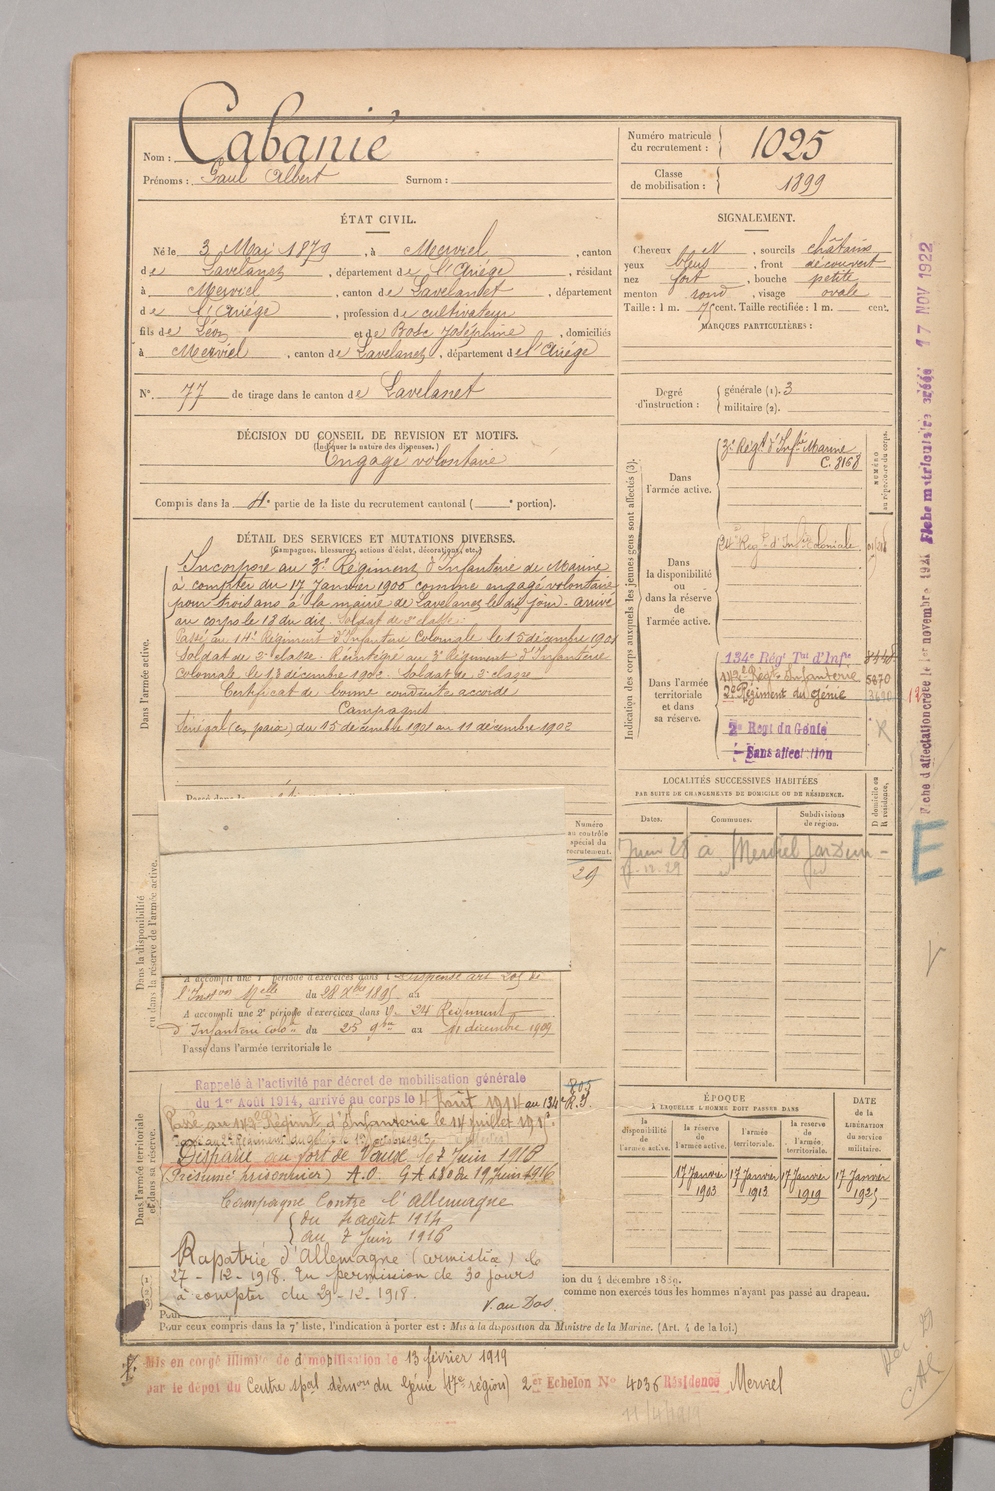 Nom : Cabanié
Prénoms : Paul Albert Surnom :
Numéro matricule
du recrutement : 1025
Classe
de mobilisation : 1899
ÉTAT CIVIL.
Né le 3 Mai 1879, à Merviel, canton
de Lavelanet, département de l'Ariége, résidant
à Merviel, canton de Lavelanet, département
de l'Ariége, profession de cultivateur
fils de Léon et de Bosc Joséphine, domiciliés
à Merviel, canton de Lavelanet, département de l'Ariége
N° 77 de tirage dans le canton de Lavelanet
SIGNALEMENT.
Cheveux N, sourcils châtains
yeux bleus, front découvert
nez fort, bouche petite
menton rond, visage ovale
Taille : 1 m. 75 cent. Taille rectifiée : 1 m. cent.
MARQUES PARTICULIÈRES :
Degré
d'instruction :
générale (1). 3
militaire (2).
DÉCISION DU CONSEIL DE REVISION ET MOTIFS.
(Indiquer la nature des dispenses.)
Engagé volontaire
Compris dans la 4e partie de la liste du recrutement cantonal ( e portion).
DÉTAIL DES SERVICES ET MUTATIONS DIVERSES.
(Campagnes, blessures, actions d'éclat, décorations, etc.)
Dans l'armée active.
Incorporé au 3e Régiment d'Infanterie de Marine
à compter du 17 Janvier 1900 comme engagé volontaire
pour trois ans à la mairie de Lavelanet le dit jour - arrivé
au corps le 18 du dit. Soldat de 2e classe.
Passé au 14e Régiment d'Infanterie Coloniale le 15 décembre 1901
Soldat de 2e classe. Réintégré au 3e Régiment d'Infanterie
Coloniale le 18 décembre 1902. Soldat de 2e classe
Certificat de bonne conduite accordé
Campagnes
Sénégal (en paix) du 15 décembre 1901 au 11 décembre 1902
Passé dans
Indication des corps auxquels les jeunes gens sont affectés (3).
NUMÉRO
au répertoire du corps.
Dans
l'armée active.
3e Régt d'Infie Marine
C. 8168
Dans
la disponibilité
ou
dans la réserve
de
l'armée active.
24e Régt d'Infie Coloniale
Dans l'armée
territoriale
et dans
sa réserve.
134e Régt Tal d'Infie
142e Régt Infanterie 5870
2e Régiment du génie
2e Regt du Génie
Sans affectation
Fiche d'affectation créée le 1er novembre 1921 Fiche matriculaire créée 17 NOV 1922
E
LOCALITÉS SUCCESSIVES HABITÉES
PAR SUITE DE CHANGEMENTS DE DOMICILE OU DE RÉSIDENCE.
Dates. Communes. Subdivisions
de région.
D domicile ou
R résidence.
Juin 28 à Merviel
Numéro
au contrôle
spécial du
recrutement.
29
Dans la disponibilité
ou dans la réserve de l'armée active.
A accompli une 1e période d'exercices dans l Dispensé art 205 de
l'Inston Mlle du 28 Xbre 1895 au
A accompli une 2e période d'exercices dans le 24e Régiment
d'Infanterie Colole du 25 9bre au 11 décembre 1909
Passé dans l'armée territoriale le
Dans l'armée territoriale
et dans sa réserve.
Rappelé à l'activité par décret de mobilisation générale
du 1er Août 1914, arrivé au corps le 4 Août 1914 au 134e R.T.
Passé au 142e Régiment d'Infanterie le 14 juillet
Disparu au fort de Vaux le 7 Juin 1916
(Présumé prisonnier) A.O. du 19 Juin 1916
Campagne Contre l'Allemagne
du 4 août 1914
au 7 Juin 1916
Rapatrié d'Allemagne (armistice) le
27-12-1918. En permission de 30 jours
à compter du 29-12-1918.
V. au Dos
ÉPOQUE
À LAQUELLE L'HOMME DOIT PASSER DANS
la
disponibilité
de
l'armée active.
la réserve
de
l'armée active.
l'armée
territoriale.
la réserve
de
l'armée
territoriale.
DATE
de la
LIBÉRATION
du service
militaire.
17 Janvier
1903
17 Janvier
1913
17 Janvier
1919
17 Janvier
1925
ion du 4 décembre 1889.
comme non exercés tous les hommes n'ayant pas passé au drapeau.
Pour
Pour ceux compris dans la 7e liste, l'indication à porter est : Mis à la disposition du Ministre de la Marine. (Art. 4 de la loi.)
Mis en congé illimité de démobilisation le 13 février 1919
par le dépôt du Centre spal démon du Génie (17e région) 2er Echelon N° 4036 Résidence Merviel